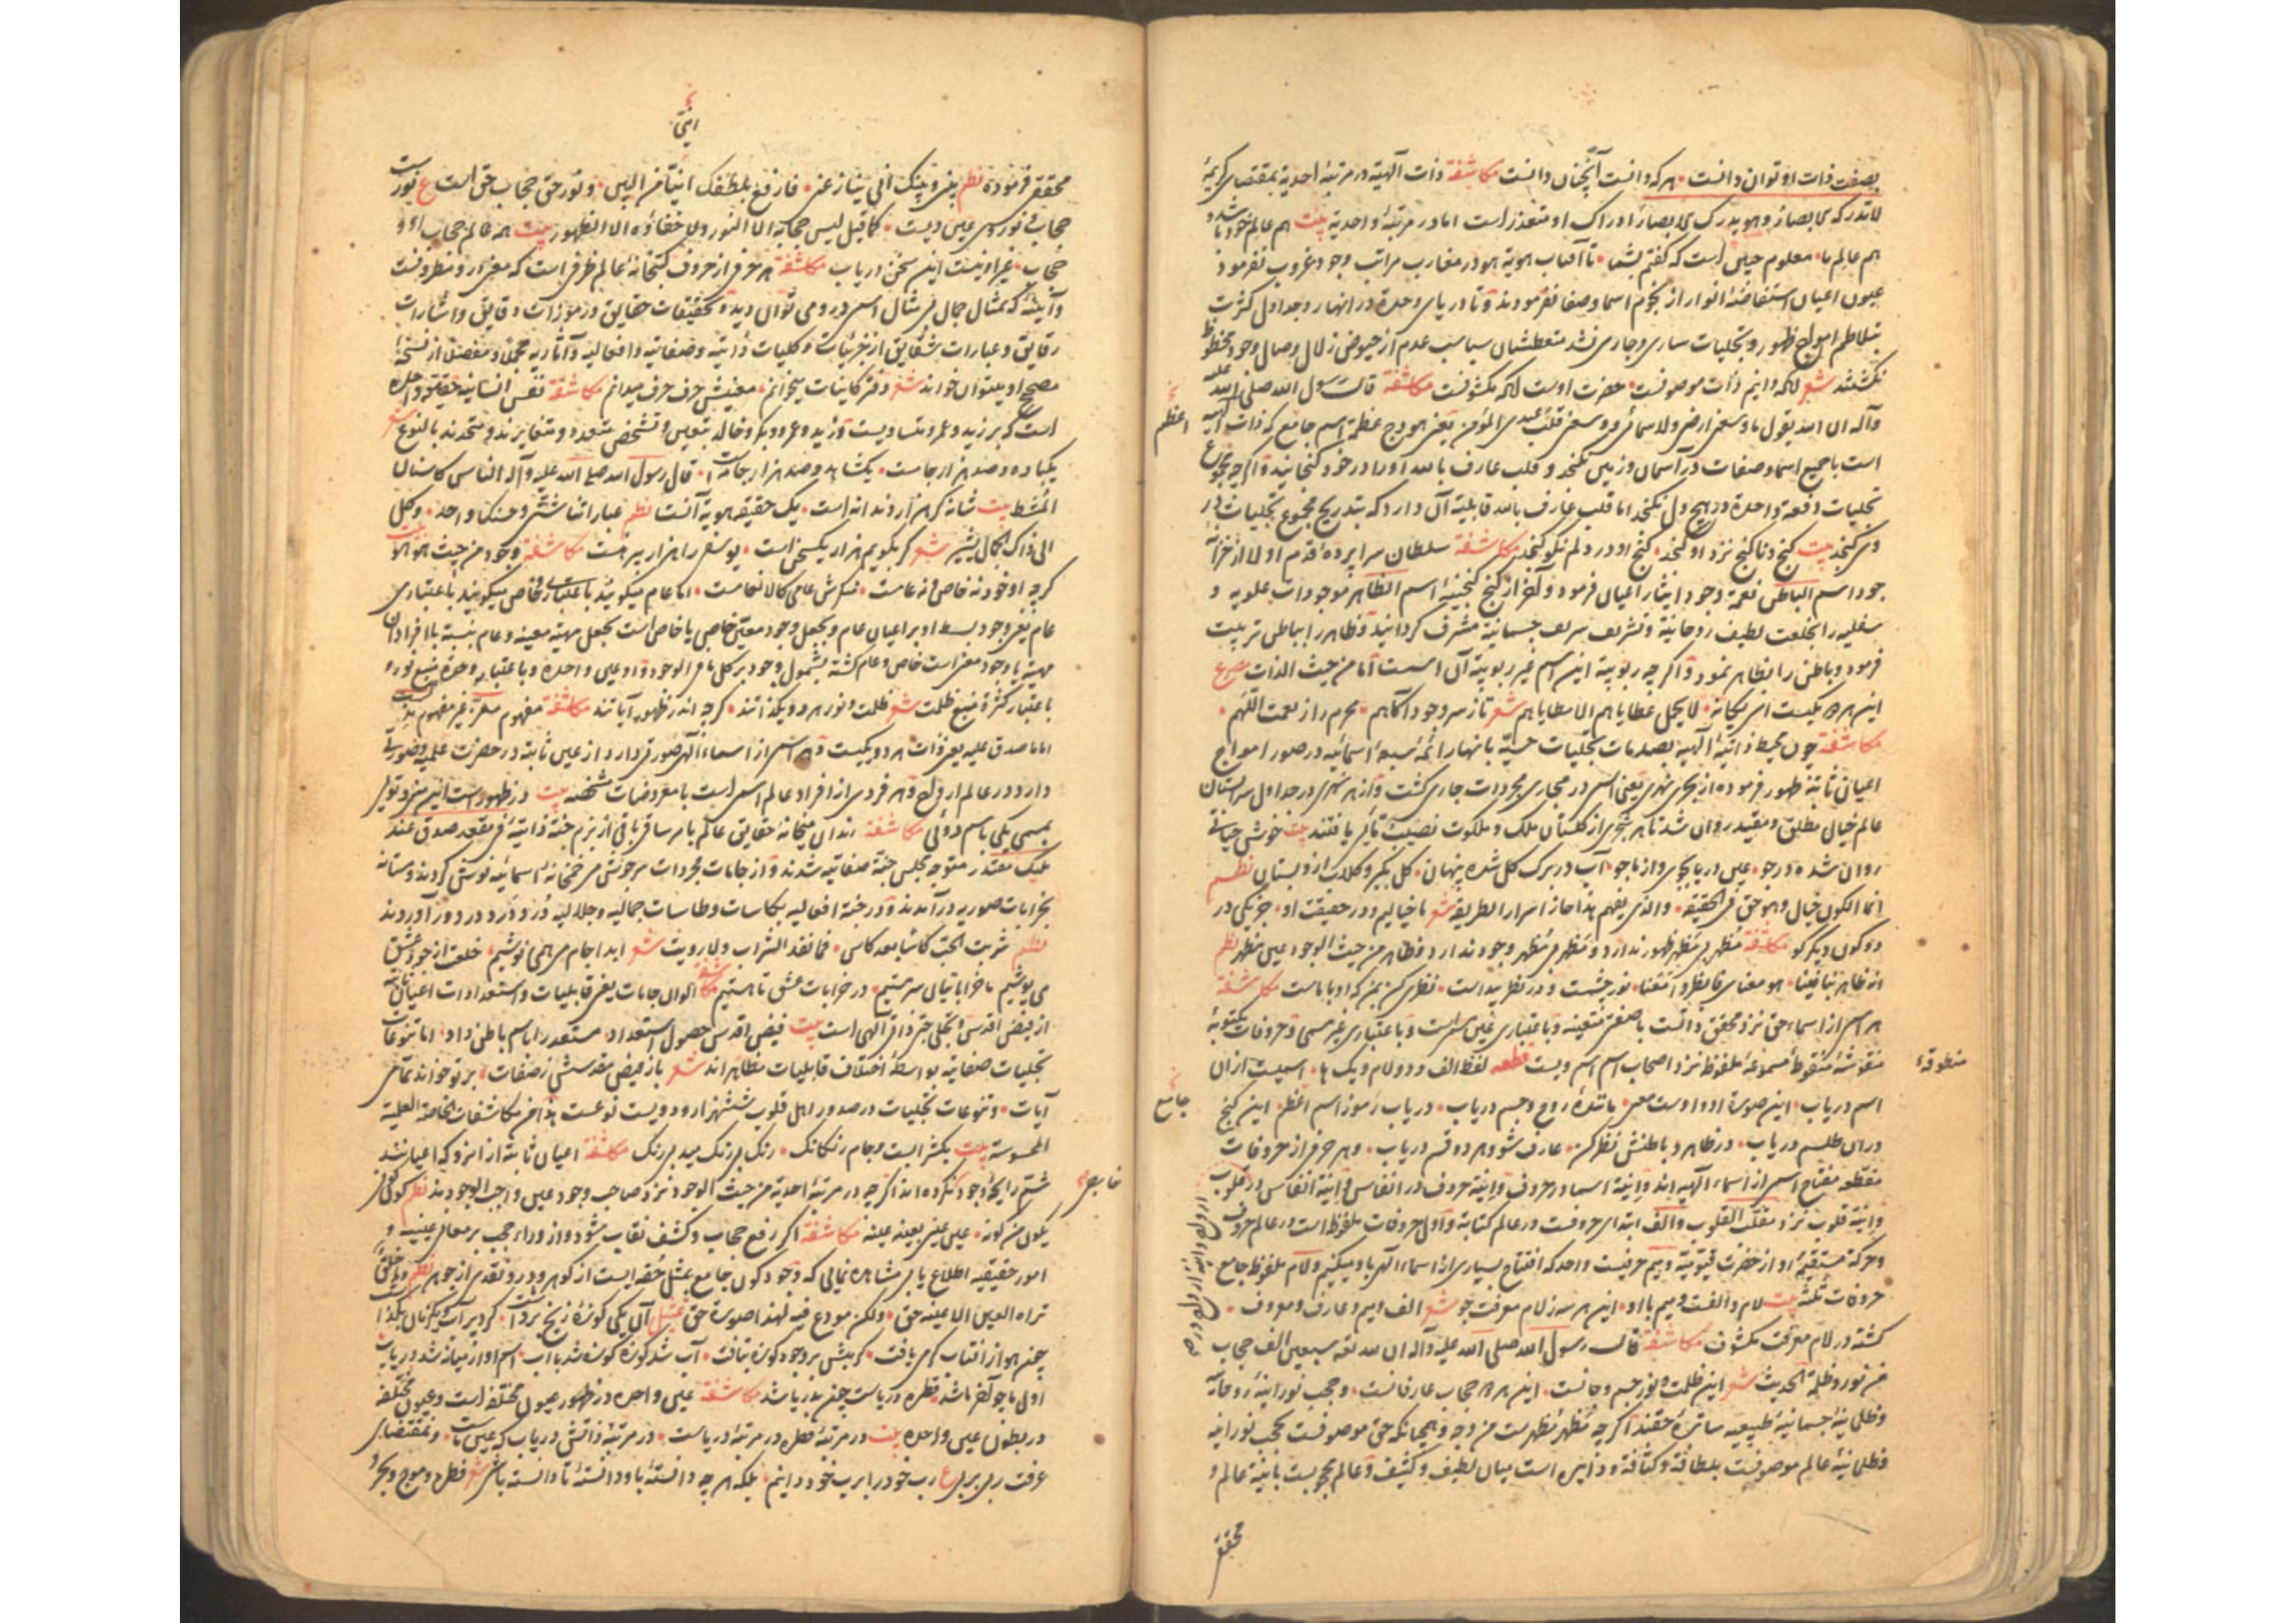 بصفت ذات او توان دانست هر که دانست آنچنان دانست مکاشفة ذات آلهیة در مرتبهٔ احدیة بمقتضای کریمهٔ
لا تدرکه الابصار و هو یدرک الابصار ادراک او متعذر است اما در مرتبهٔ واحدیة بیت هم عالم خود باشد و
هم عالم ما معلوم همین است که گفتم بشما تا آفتاب هویة هو در مغارب مراتب وجود غروب نفرمود
عیون اعیان استفاضهٔ انوار از نجوم اسما و صفا نفرمودند و تا دریای وحدة در انهار و جداول کثرت
بتلاطم امواج ظهور و تجلیات ساری و جاری نشد متعطشان سباسب عدم از حیوض زلال وصال وجود محظوظ
نگشتند شعر لاکه دایم ذات موصوفست حضرت اوست لاکه مکشوفست مکاشفة قال رسول الله صلی الله علیه
و آله ان الله یقول ما وسعنی ارضی ولا سمائی و وسعنی قلب عبدی المؤمن یعنی هودج عظمة اسم جامع که ذات الهیه
اعظم
است با جمیع اسما و صفات در آسمان و زمین نگنجد و قلب عارف بالله او را در خود گنجانید و اگرچه مجموع
تجلیات دفعة واحدة در هیچ دل نگنجد اما قلب عارف بالله قابلیة آن دارد که بتدریج مجموع تجلیات در
وی گنجد بیت گنج و ناگنج نزد او گنجد گنج او در دلم نکو گنجد مکاشفة سلطان سراپرده قدم اولا از خزانهٔ
جود اسم الباطن نعمة وجود ایثار اعیان فرمود و آخر از گنج گنجینهٔ اسم الظاهر موجودات علویه و
سفلیه را بخلعت لطیف روحانیة و تشریف شریف جسمانیة مشرف گردانید و ظاهر را بباطن تربیت
فرمود و باطن را بظاهر نمود و اگرچه ربوبیة این اسم غیر ربوبیة آن اسمست اما من حیث الذات مصرع
این هر دو یکیست ای یگانه لا یحمل عطایاهم الا مطایاهم شعر تا ز سر وجود آگاهم محرم راز نعمت اللهم
مکاشفة چون محیط ذاتیهٔ آلهیه بصدمات تجلیات حسیّه بانهار ائمهٔ سبعهٔ اسمائیه در صور امواج
اعیان ثابته ظهور فرموده از بحری نهری یعنی اسمی در مجاری مجردات جاری گشت و از هر نهری در جداول سرابستان
عالم خیال مطلق و مقید روان شد تا هر شجری از گلستان ملک و ملکوت نصیبی تأثیر یافتند بیت خوش حیاتی
روان شده در جو عین دریا بجوی واز ما جو آب در برگ گل شده پنهان گل بگیر و گلاب ازو بستان نظم
انما الکون خیال و هو حق فی الحقیقة والذی یفهم هذا حاز اسرار الطریقة شعر ما خیالیم و در حقیقت او جز یکی در
دو کون دیگر کو مکاشفة مُظهر بی مَظهر ظهور ندارد و مَظهر بی مُظهر وجود ندارد و ظاهر من حیث الوجود عین مظهر نظم
ان ظاهرنا بیا فعلنا هو معنا فانظروا معنا نور چشمست و در نظر پیداست نظری کن ببین که او با ماست مکاشفة
هر اسمی از اسماء حق نزد محقق ذاتست با صفتی متعینه و باعتباری عین مسماست و باعتباری غیر مسمی و حروفات مکتوبهٔ
منقوشهٔ منقوطهٔ مسموعهٔ ملفوظه نزد اصحاب اسم اسم ویست قطعه لفظا الف و دو لام و یک ها اسمیست ازان
منطوقهٔ
اسم دریاب این صورة او و اوست معنی مانندهٔ روح و جسم دریاب دریاب رموز اسم اعظم این گنج
جامع
دران طلسم دریاب در ظاهر و باطنش نظر کن عارف شو و هر دو قسم دریاب و هر حرفی از حروفات
مقطعه مفتاح اسمی از اسماء آلهیه اند و اَنیة اسما در حروف و انیّة حروف در انفاس و انیة انفاس در قلوب
و انیة قلوب نزد مقلب القلوب و الف ابتدای حروفست در عالم کتابة و اول حروفات ملفوظ است در عالم حروف
و حرکة مستقیمهٔ او از حضرت قیومیة و میم حرفیست واحد که افتتاح بسیاری از اسماء الهی باو میکنیم و لام ملفوظ جامع
حروفات ثلثه بیت لام و الفست و میم با او این هر سه ز لام معرفت جو شعر الف و میم و عارف و معروف
گشته در لام معرفت مکشوف مکاشفة قال رسول الله صلی الله علیه و آله ان لله تعالی سبعین الف حجاب
من نور و ظلمة الحدیث شعر این ظلمت و نور جسم و جانست این هر دو حجاب عارفانست و حجب نورانیهٔ روحانیه
و ظلمانیهٔ جسمانیهٔ طبیعیه ساترهٔ حقند اگرچه مُظهر مَظهرست من وجه و همچنانکه حق موصوفست بحجب نورانیه
و ظلمانیه عالم موصوفست بلطافة و کثافة و دایره است میان لطیف و کثیف و عالم محجوبست بانیة عالم و
محقق
انیتی
محقق فرموده نظم بینی و بینک انی ینازعنی فارفع بلطفک انیتی من البین و نور حق حجاب حق است ع نورست
حجاب و نوری عین ویست کما قیل لیس حجابه الا النور ولا خفاؤه الا الظهور بیت همه عالم حجاب او و
حجاب غیر او نیست این سخن دریاب مکاشفة هر حرفی از حروف کتبخانهٔ عالم ظرفی است که معنی او مظروفست
و آینهٔ که تمثال جمال بی مثال اسمی درو می توان دید و تحقیقات حقایق و رموزات دقایق و اشارات
رقایق و عبارات شقایق از جزئیات و کلیات ذاتیه و صفاتیه و افعالیه و آثاریه مجملا و مفصلا از نسخهٔ
مصحح او میتوان خواند شعر دفتر کاینات میخوانم معنیش حرف حرف میدانم مکاشفة نفس انسانیه حقیقتی واحده
است که بر زید و عمرو متساویست و زید و عمرو و بکر و خالد بتعین و تشخص متعدد و متغایرند و متحدند بالنوع شعر
یکباده و صد هزار جامست یک شاهد و صد هزار جامه است قال رسول الله صلی الله علیه و آله الناس کاسنان
المشط بیت شانه گر هزار دندانه است یک حقیقة هویة آنست نظم عباراتنا شتی و حسنک واحد و کل
الی ذاک الجمال یشیر شعر گر بگویم هزار یکسخن است یوسفی را هزار پیرهنست مکاشفة وجود من حیث هو هو بیت
گرچه او خود نه خاص نی عامست منکرش عامی کالانعامست اما عام میگوئید باعتباری و خاص میگوئید باعتباری
عام یعنی وجود بسط او بر اعیان عام و بجعل وجود معین خاصی یا خاص است بجعل مهیة معینه و عام نسبة با افراد آن
مهیة یا وجود معنی است خاص و عام گشته بشمول وجود بر کل ما فی الوجود و او عین واحده و باعتبار وحدة منبع نور و
باعتبار کثرة منبع ظلمت شعر ظلمت و نور هر دو یکذاتند گرچه اندر ظهور آیاتند مکاشفة مفهوم معزّ غیر مفهوم مذل است
اما ما صدق علیه یعنی ذات هر دو یکیست و هر اسمی از اسماء الهی صورتی دارد از عین ثابته در حضرت علمیه و صورتی
دارد در عالم ارواح و هر فردی از افراد عالم اسمی است با معروضات مشخصه بیت در ظهور است این منی و توئی
بمسمی یکی باسم دوئی مکاشفة رندان میخانه حقایق عالم بامر ساقی باقی از بزم جنة ذاتیهٔ فی مقعد صدق عند
ملیک مقتدر متوجه مجلس جنة صفاتیه شدند و از جامات مجردات سرخوش می خمخانهٔ اسمائیه نوش کردند و مستانه
بخرابات صوریه در آمدند و در جنة افعالیه بکاسات و طاسات جمالیه و جلالیه دُرد و دَرد در دور آوردند
نظم شربت الحب کأسا بعد کاس فما نفد الشراب و لا رویت شعر ابدا جام می همی نوشیم خلعت از جود عشق
می پوشیم ما خراباتیان سرمستیم در خرابات عشق تا هستیم مکاشفة الوان جامات یعنی قابلیات و استعدادات اعیان ثابته
از فیض اقدس و تجلی حبّی ذاتی آلهی است بیت فیض اقدس حصول استعداد مستعد را باسم باطن داد اما تنوعات
تجلیات صفاتیه بواسطهٔ اختلاف قابلیات مظاهر اند شعر باز فیض مقدسش ز صفات بر تو خواند تمامی
آیات و تنوعات تجلیات در صدور اهل قلوب ششهزار و دویست نوعست هذا من مکاشفات الخاصة العلمیة
المحسوسة بیت یک شرابست و جام رنگارنگ رنگ بی رنگ میدهد بی رنگ مکاشفة اعیان ثابته از انرو که اعیانند
شمّ رایحهٔ وجود نکرده اند اگرچه در مرتبهٔ احدیة من حیث الوجود نزد صاحب وجود عین واجب الوجودند نظم کونی
یکون من کونه عینی عینی بعینه عینه مکاشفة اگر رفع حجاب و کشف نقاب شود و از وراء حجب بر معانی غیبیه و
امور حقیقیه اطلاع یابی مشاهده نمائی که وجود کون جامع بمثل حقه ایست از گوهر و درو نقدی از جوهر نظم
تراه العین الا عینه حق ولکن مودع فیه لهذا صورة حق تمثیل آن یکی کوزهٔ ز یخ برداشت کرد پر آب و یکزمان بگذاشت
چون هوا از افتاب گرمی یافت گرمیش بر وجود کوزه بتافت آب شد کوزه کوزه شد با آب اسم او از میانه شد دریاب
اول ما چو آخر ما شد قطره دریاست چون بدریا شد مکاشفة عین واحده در ظهور عیون مختلفه است و عیون مختلفه
در بطون عین واحده بیت در مرتبهٔ قطره در مرتبهٔ دریاست در مرتبهٔ ذاتش دریاب که عین ماست و بمقتضای
عرفت ربی بربی ع رب خود را برب خود دانم بلکه هر چه دانستهٔ باو دانستهٔ تا دانسته باشی شعر قطره و موج و بحر و